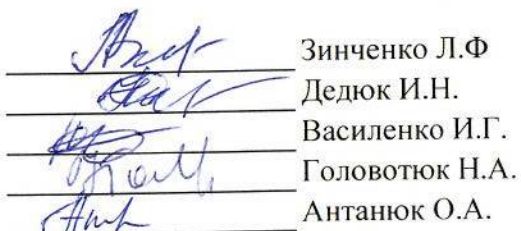 Зинченко Л.Ф
Дедюк И.Н.
Василенко И.Г.
Головотюк Н.А.
Антанюк О.А.